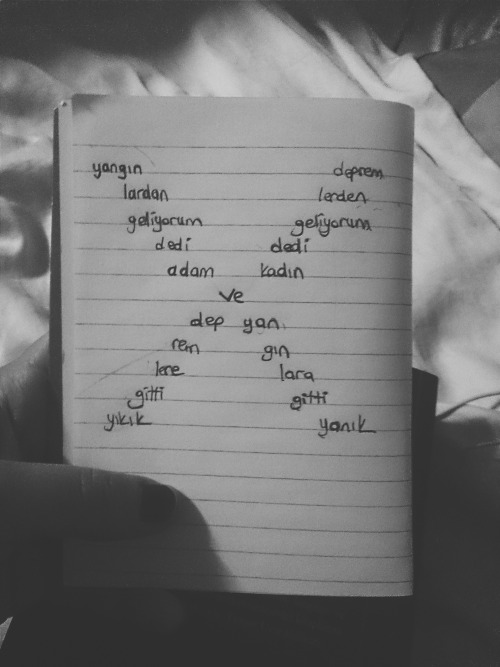 yangın deprem
lardan lerden
geliyorum geliyorum
dedi dedi
adam kadın
ve
dep yan
rem gın
lere lara
gitti gitti
yıkık yanık